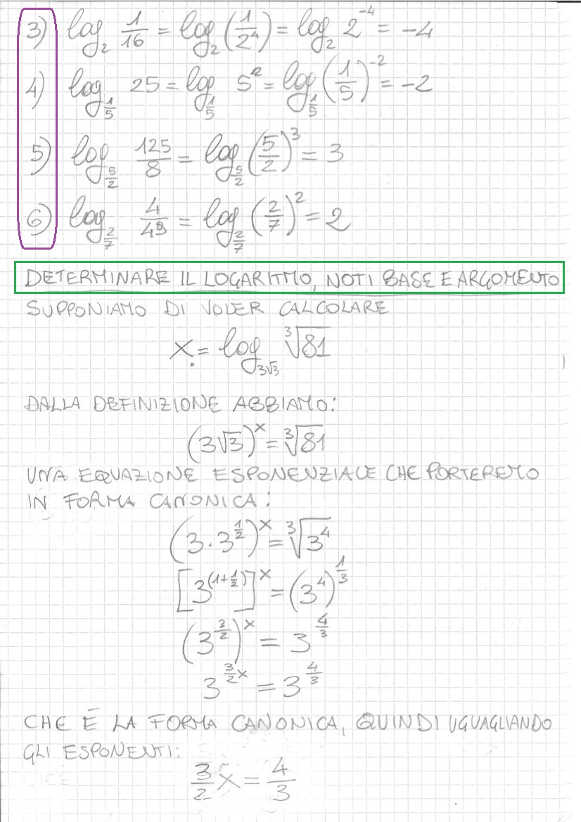 3) log₂ 1/16 = log₂ (1/2⁴) = log₂ 2⁻⁴ = -4
4) log_{1/5} 25 = log_{1/5} 5² = log_{1/5} (1/5)⁻² = -2
5) log_{5/2} 125/8 = log_{5/2} (5/2)³ = 3
6) log_{2/7} 4/49 = log_{2/7} (2/7)² = 2
DETERMINARE IL LOGARITMO, NOTI BASE E ARGOMENTO
SUPPONIAMO DI VOLER CALCOLARE
x = log_{3√3} ∛81
DALLA DEFINIZIONE ABBIAMO:
(3√3)^x = ∛81
UNA EQUAZIONE ESPONENZIALE CHE PORTEREMO
IN FORMA CANONICA:
(3·3^{1/2})^x = ∛3⁴
[3^{(1+1/2)}]^x = (3⁴)^{1/3}
(3^{3/2})^x = 3^{4/3}
3^{3/2 x} = 3^{4/3}
CHE È LA FORMA CANONICA, QUINDI UGUAGLIANDO
GLI ESPONENTI:
3/2 x = 4/3